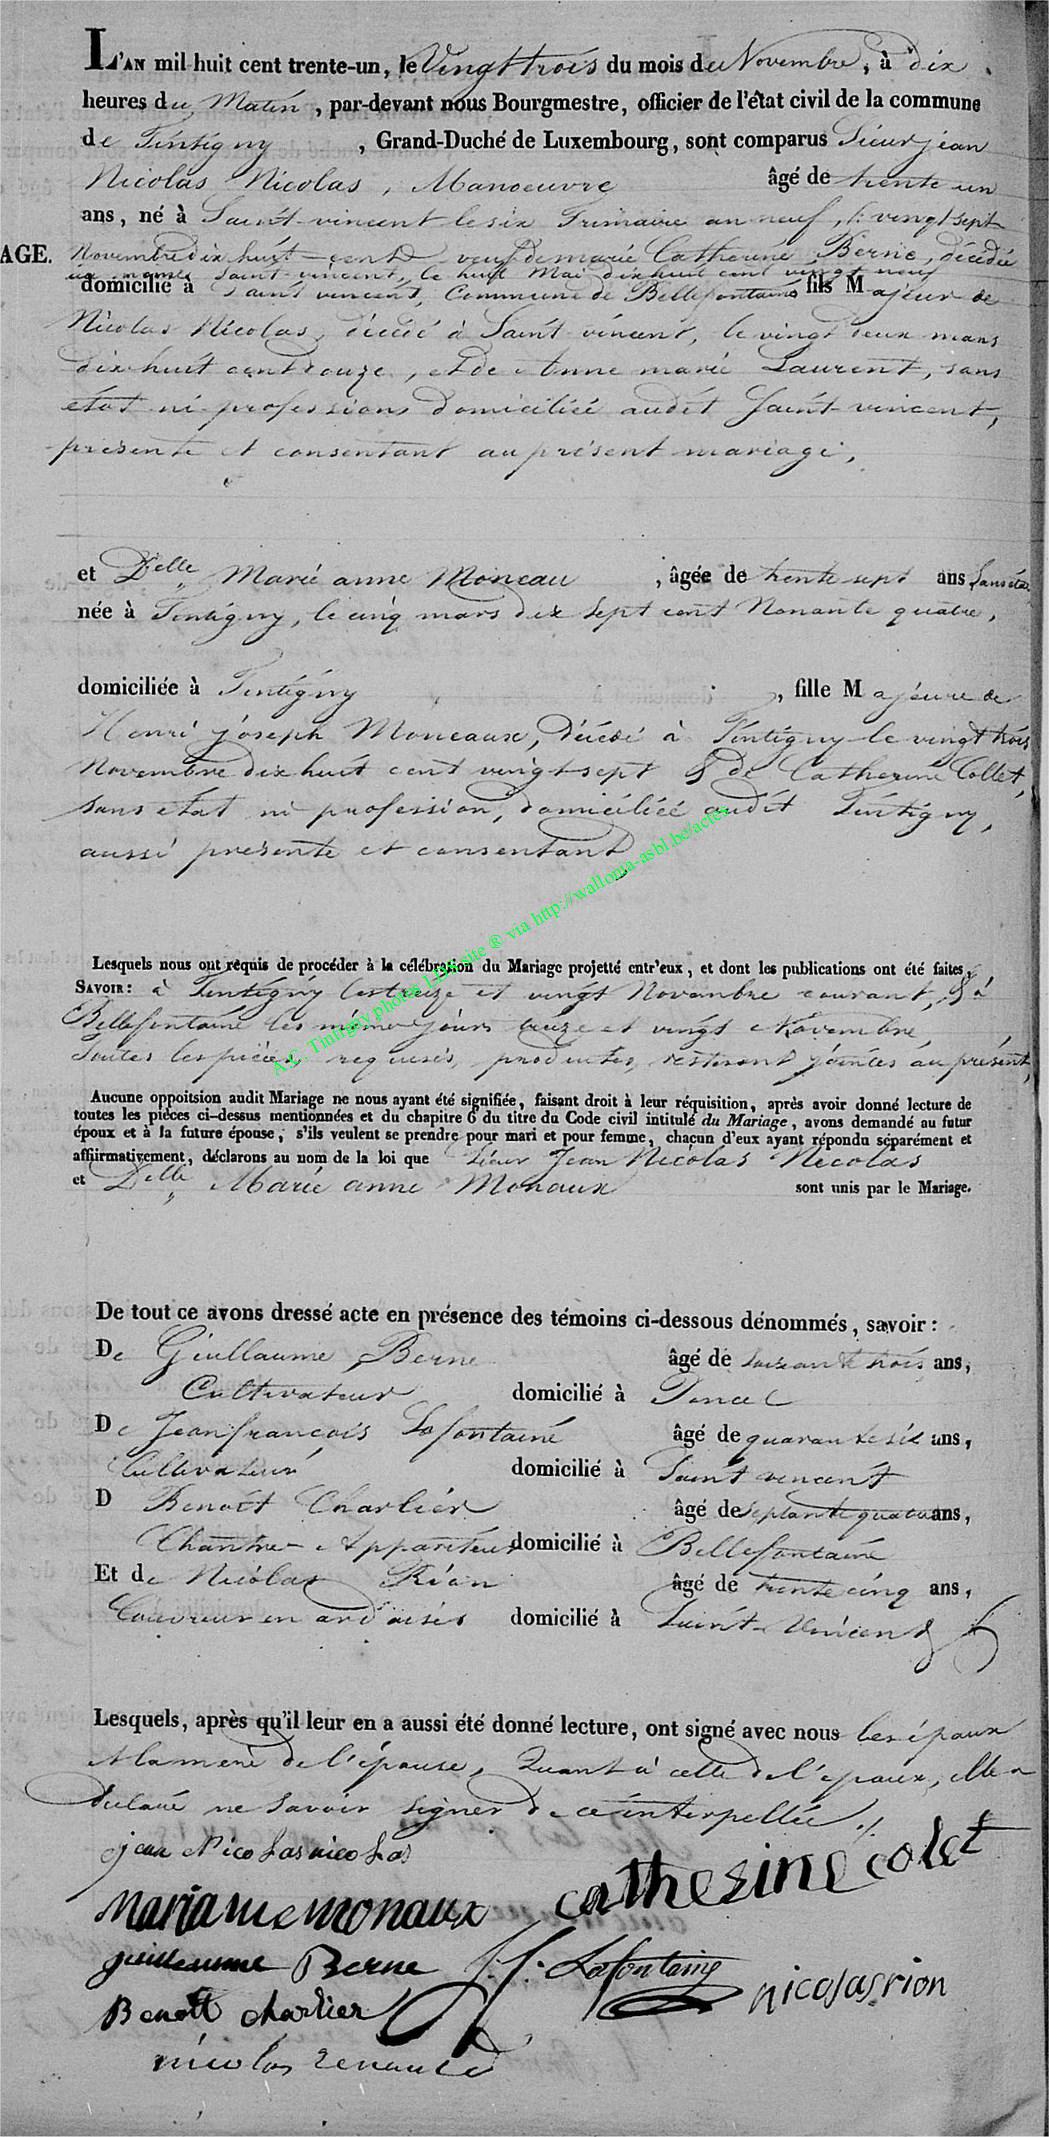 L'AN mil huit cent trente-un, le Vingt trois du mois de Novembre, à dix
heures du Matin, par-devant nous Bourgmestre, officier de l'état civil de la commune
de Tintigny, Grand-Duché de Luxembourg, sont comparus Sieur jean
Nicolas Nicolas, Manoeuvre âgé de trente un
ans, né à Saint-vincent le six Frimaire an neuf, (: vingt sept
AGE.
Novembre dix huit-cent veuf de marie Catherine Berne, décédée
Saint-vincent, le huit Mai dix huit cent vingt neuf
domicilié à Saint vincent, Commune de Bellefontaine fils Majeur de
Nicolas Nicolas, décédé à Saint-vincent, le vingt deux mars
dix huit cent douze, et de Anne marie Laurent, sans
état ni professions domiciliée audit Saint-vincent,
présente et consentant au présent mariage,
et Delle Marie anne Moneau, âgée de trente sept ans Sans état
née à Tintigny, le cinq mars dix sept cent Nonante quatre,
domiciliée à Tintigny, fille Majeure de
Henri joseph Moneaux, décédé à Tintigny le vingt trois
Novembre dix huit cent vingt-sept & de Catherine Collet,
sans état ni profession, domiciliée audit Tintigny,
aussi présente et consentant
A.C. Tintigny photos LDS site ® via http://wallonia-asbl.be/actes
Lesquels nous ont requis de procéder à la célébration du Mariage projetté entr'eux, et dont les publications ont été faites,
SAVOIR: à Tintigny les treize et vingt Novembre courant, & à
Bellefontaine les même jours treize et vingt Novembre,
toutes les pièces requises, produites, resteront jointes au présent,
Aucune oppoitsion audit Mariage ne nous ayant été signifiée, faisant droit à leur réquisition, après avoir donné lecture de
toutes les pièces ci-dessus mentionnées et du chapitre 6 du titre du Code civil intitulé du Mariage, avons demandé au futur
époux et à la future épouse, s'ils veulent se prendre pour mari et pour femme, chacun d'eux ayant répondu séparément et
affiirmativement, déclarons au nom de la loi que Sieur Jean Nicolas Nicolas
et Delle Marie anne Monaux sont unis par le Mariage.
De tout ce avons dressé acte en présence des témoins ci-dessous dénommés, savoir:
De Guillaume Berne âgé de soixante trois ans,
Cultivateur domicilié à
De Jean françois Lafontaine âgé de quarante six ans,
Cultivateur domicilié à Saint vincent
D Benoit Charlier âgé de septante quatre ans,
Chantre-Appariteur domicilié à Bellefontaine
Et de Nicolas Rion âgé de trente cinq ans,
Couvreur en ardoises domicilié à Saint-Vincent
Lesquels, après qu'il leur en a aussi été donné lecture, ont signé avec nous les époux
et la mère de l'épouse, Quant à celle de l'époux, elle a
déclaré ne savoir signer de ce interpellée ./.
jean Nicolas nicolas
mariaene monaux catherine colet
guilleaume Berne J. f. Lafontaine
nicolas rion
Benoit charlier
nicolas renauld